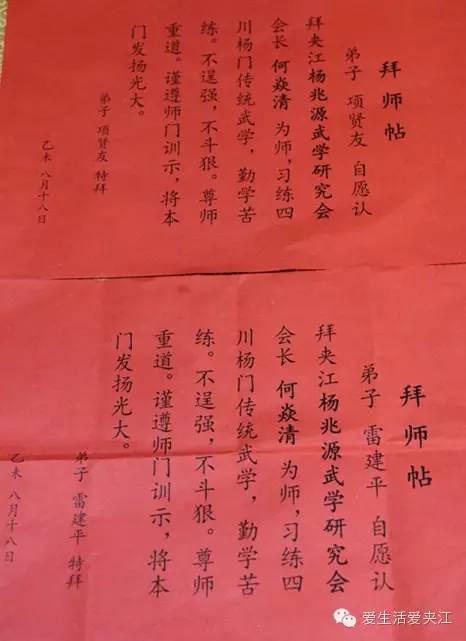 拜师帖
弟子 项贤友 自愿认
拜夹江杨兆源武学研究会
会长 何焱清 为师，习练四
川杨门传统武学，勤学苦
练。不逞强，不斗狠。尊师
重道。谨遵师门训示，将本
门发扬光大。
弟子 项贤友 特拜
乙未 八月十八日
拜师帖
弟子 雷建平 自愿认
拜夹江杨兆源武学研究会
会长 何焱清 为师，习练四
川杨门传统武学，勤学苦
练。不逞强，不斗狠。尊师
重道。谨遵师门训示，将本
门发扬光大。
弟子 雷建平 特拜
乙未 八月十八日
爱生活爱夹江